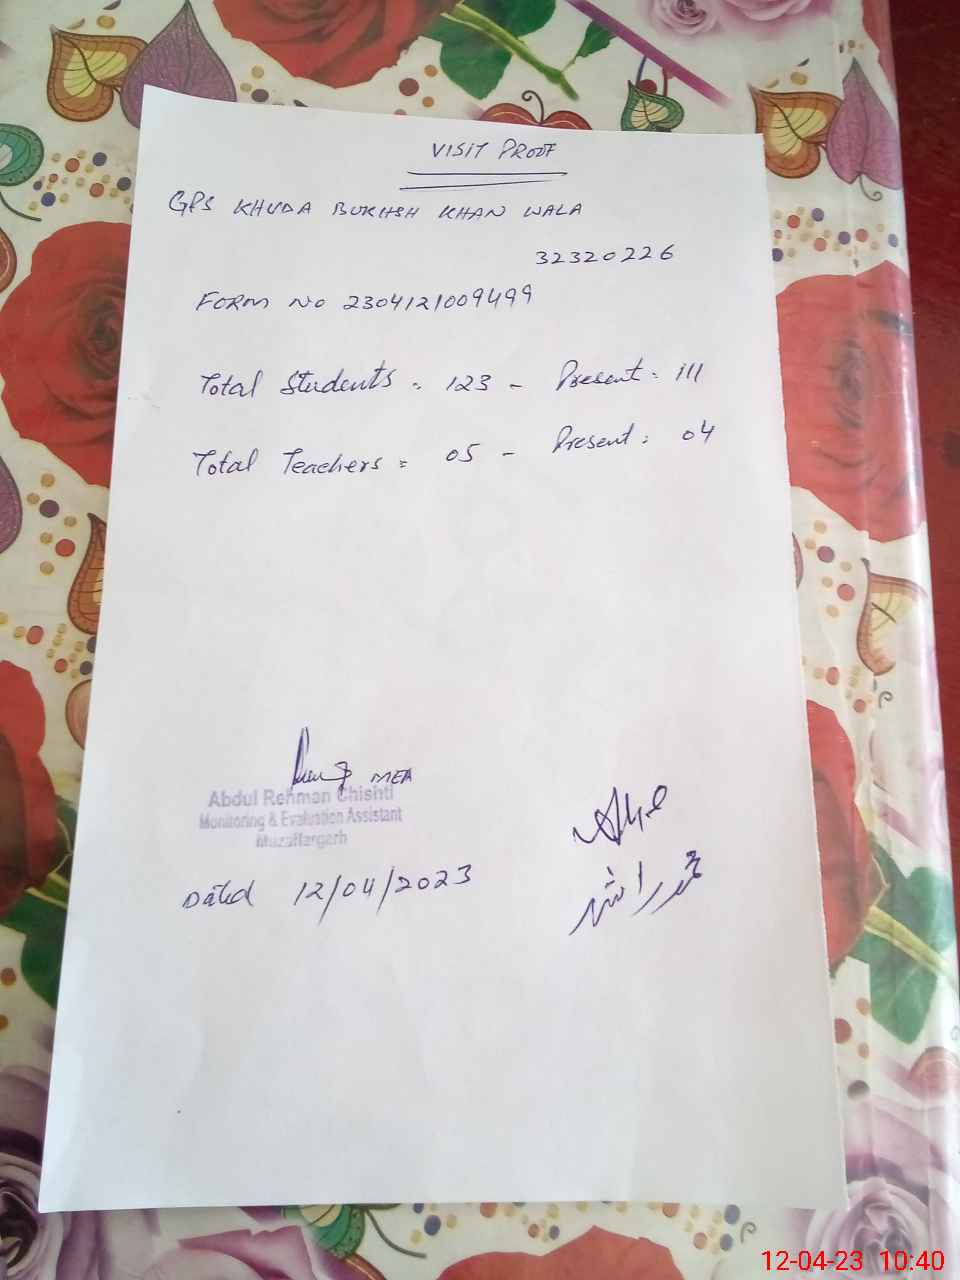 VISIT PROOF
GPS KHUDA BUKHSH KHAN WALA
32320226
FORM NO 2304121009499
Total Students = 123 - Present = 111
Total Teachers = 05 - Present = 04
MEA
Abdul Rehman Chishti
Monitoring & Evaluation Assistant
Muzaffargarh
Dated 12/04/2023
محمد راشد
12-04-23 10:40